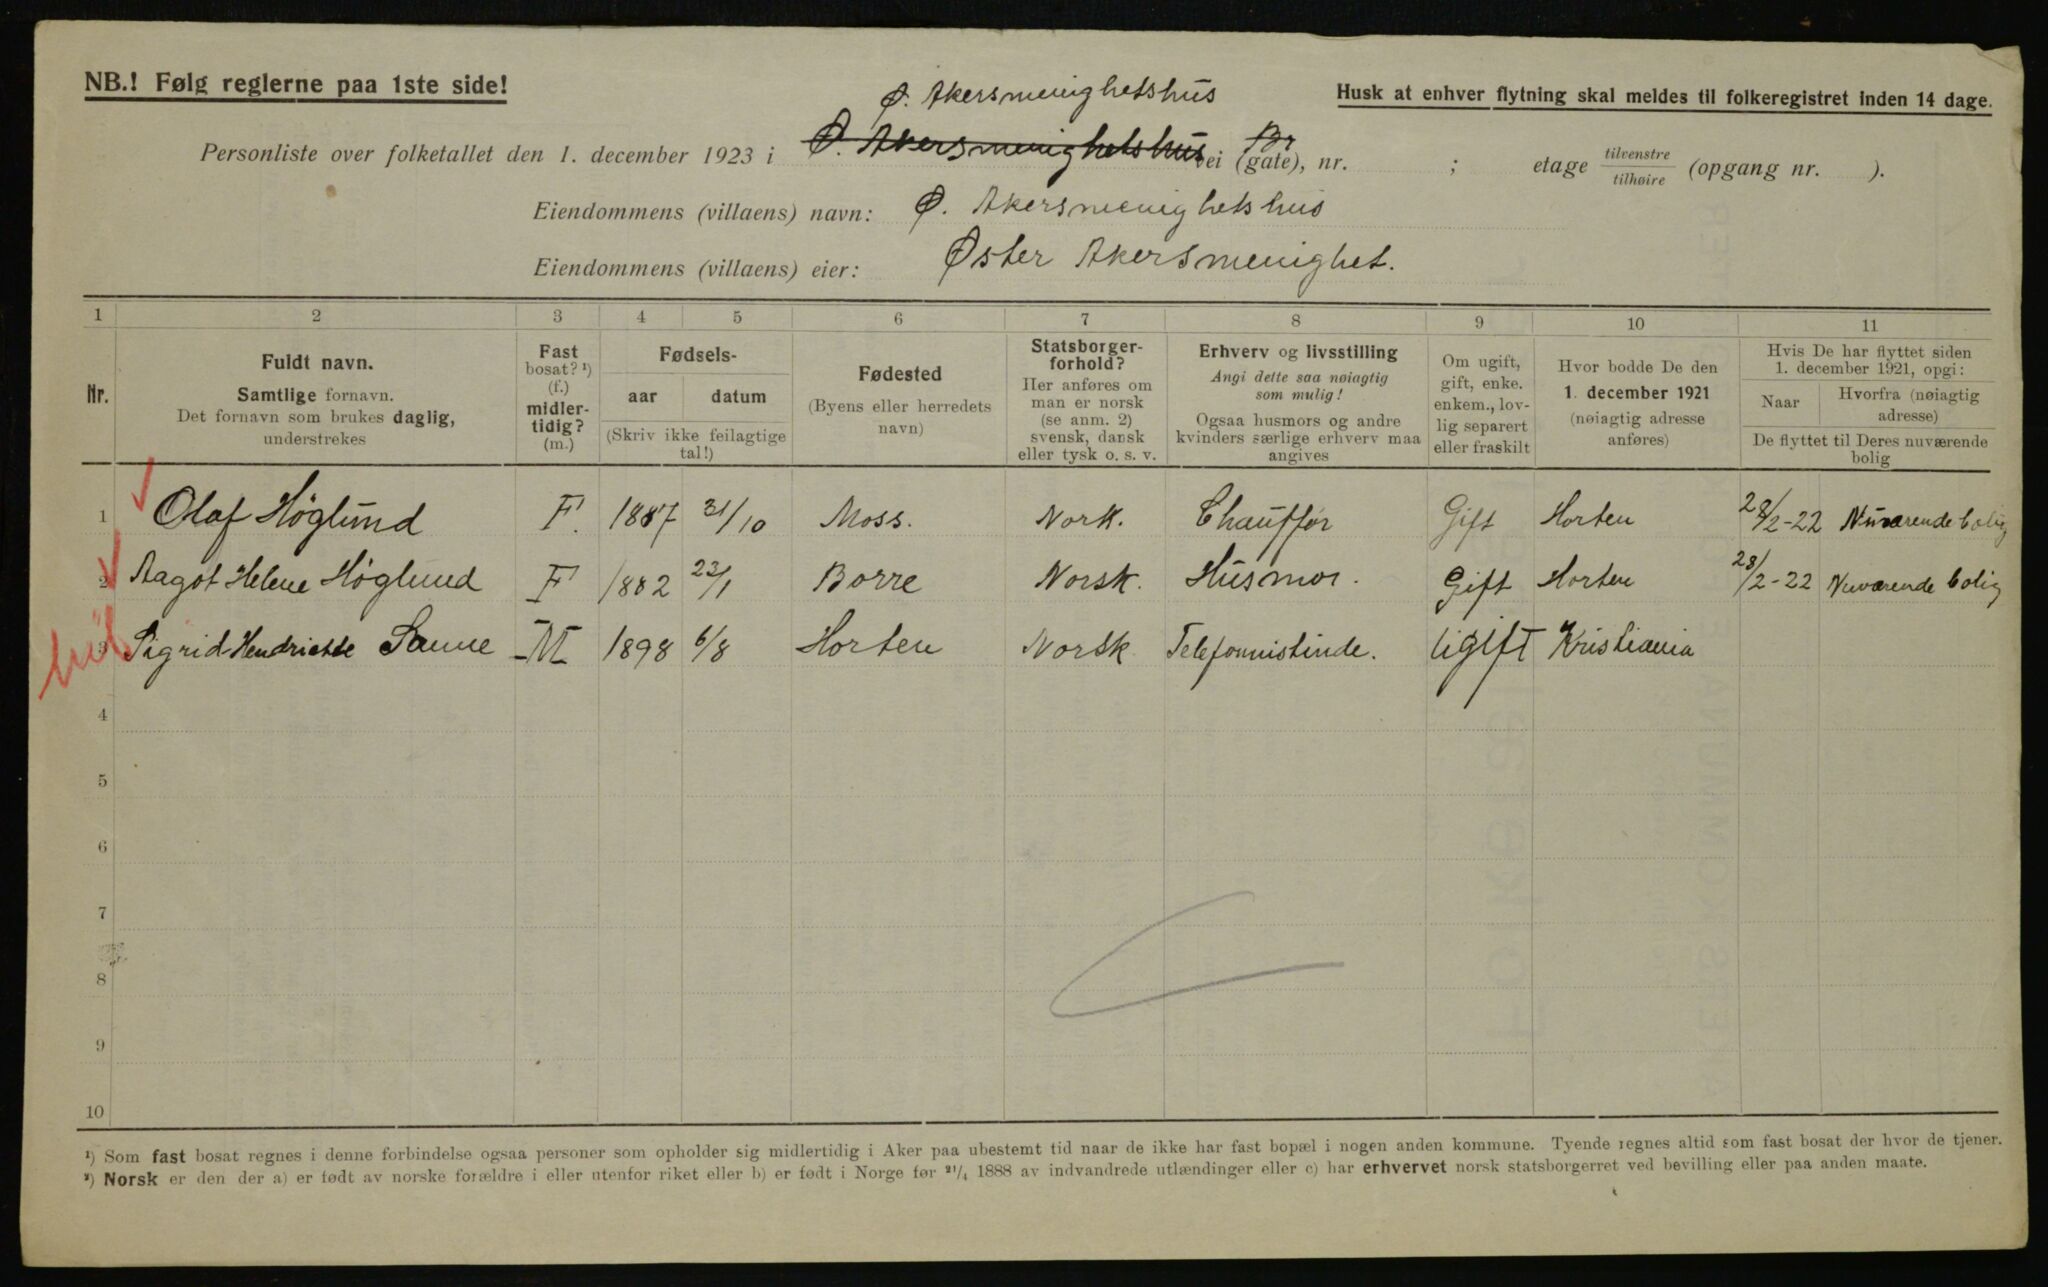 NB.! Følg reglerne paa 1ste side!
Ø. Akersmenighetshus
Husk at enhver flytning skal meldes til folkeregistret inden 14 dage.
Personliste over folketallet den 1. december 1923 i Ø. Akersmenighetshus vei (gate), nr. ; etage tilvenstre tilhøire (opgang nr. ).
Eiendommens (villaens) navn: Ø. Akersmenighetshus
Eiendommens (villaens) eier: Øster Akersmenighet.
1 2 3 4 5 6 7 8 9 10 11
Nr.
Fuldt navn.
Samtlige fornavn.
Det fornavn som brukes daglig,
understrekes
Fast
bosat? ¹)
(f.)
midler-
tidig?
(m.)
Fødsels-
aar datum
(Skriv ikke feilagtige
tal!)
Fødested
(Byens eller herredets
navn)
Statsborger-
forhold?
Her anføres om
man er norsk
(se anm. 2)
svensk, dansk
eller tysk o. s. v.
Erhverv og livsstilling
Angi dette saa nøiagtig
som mulig!
Ogsaa husmors og andre
kvinders særlige erhverv maa
angives
Om ugift,
gift, enke.
enkem., lov-
lig separert
eller fraskilt
Hvor bodde De den
1. december 1921
(nøiagtig adresse
anføres)
Hvis De har flyttet siden
1. december 1921, opgi:
Naar
Hvorfra (nøiagtig
adresse)
De flyttet til Deres nuværende
bolig
1 Olaf Høglund F. 1887 31/10 Moss. Nork. Chauffør Gift Horten 28/2-22 Nuværende bolig
2 Aagot Helene Høglund F 1882 23/1 Borre Norsk. Husmor. Gift Horten 28/2-22 Nuværende bolig
3 Sigrid Hendriette Sanne M 1898 6/8 Horten Norsk Telefonnistinde. Ugift Kristiania
4
5
6
7
8
9
10
¹) Som fast bosat regnes i denne forbindelse ogsaa personer som opholder sig midlertidig i Aker paa ubestemt tid naar de ikke har fast bopæl i nogen anden kommune. Tyende regnes altid som fast bosat der hvor de tjener.
²) Norsk er den der a) er født av norske forældre i eller utenfor riket eller b) er født i Norge før ²¹/₄ 1888 av indvandrede utlændinger eller c) har erhvervet norsk statsborgerret ved bevilling eller paa anden maate.